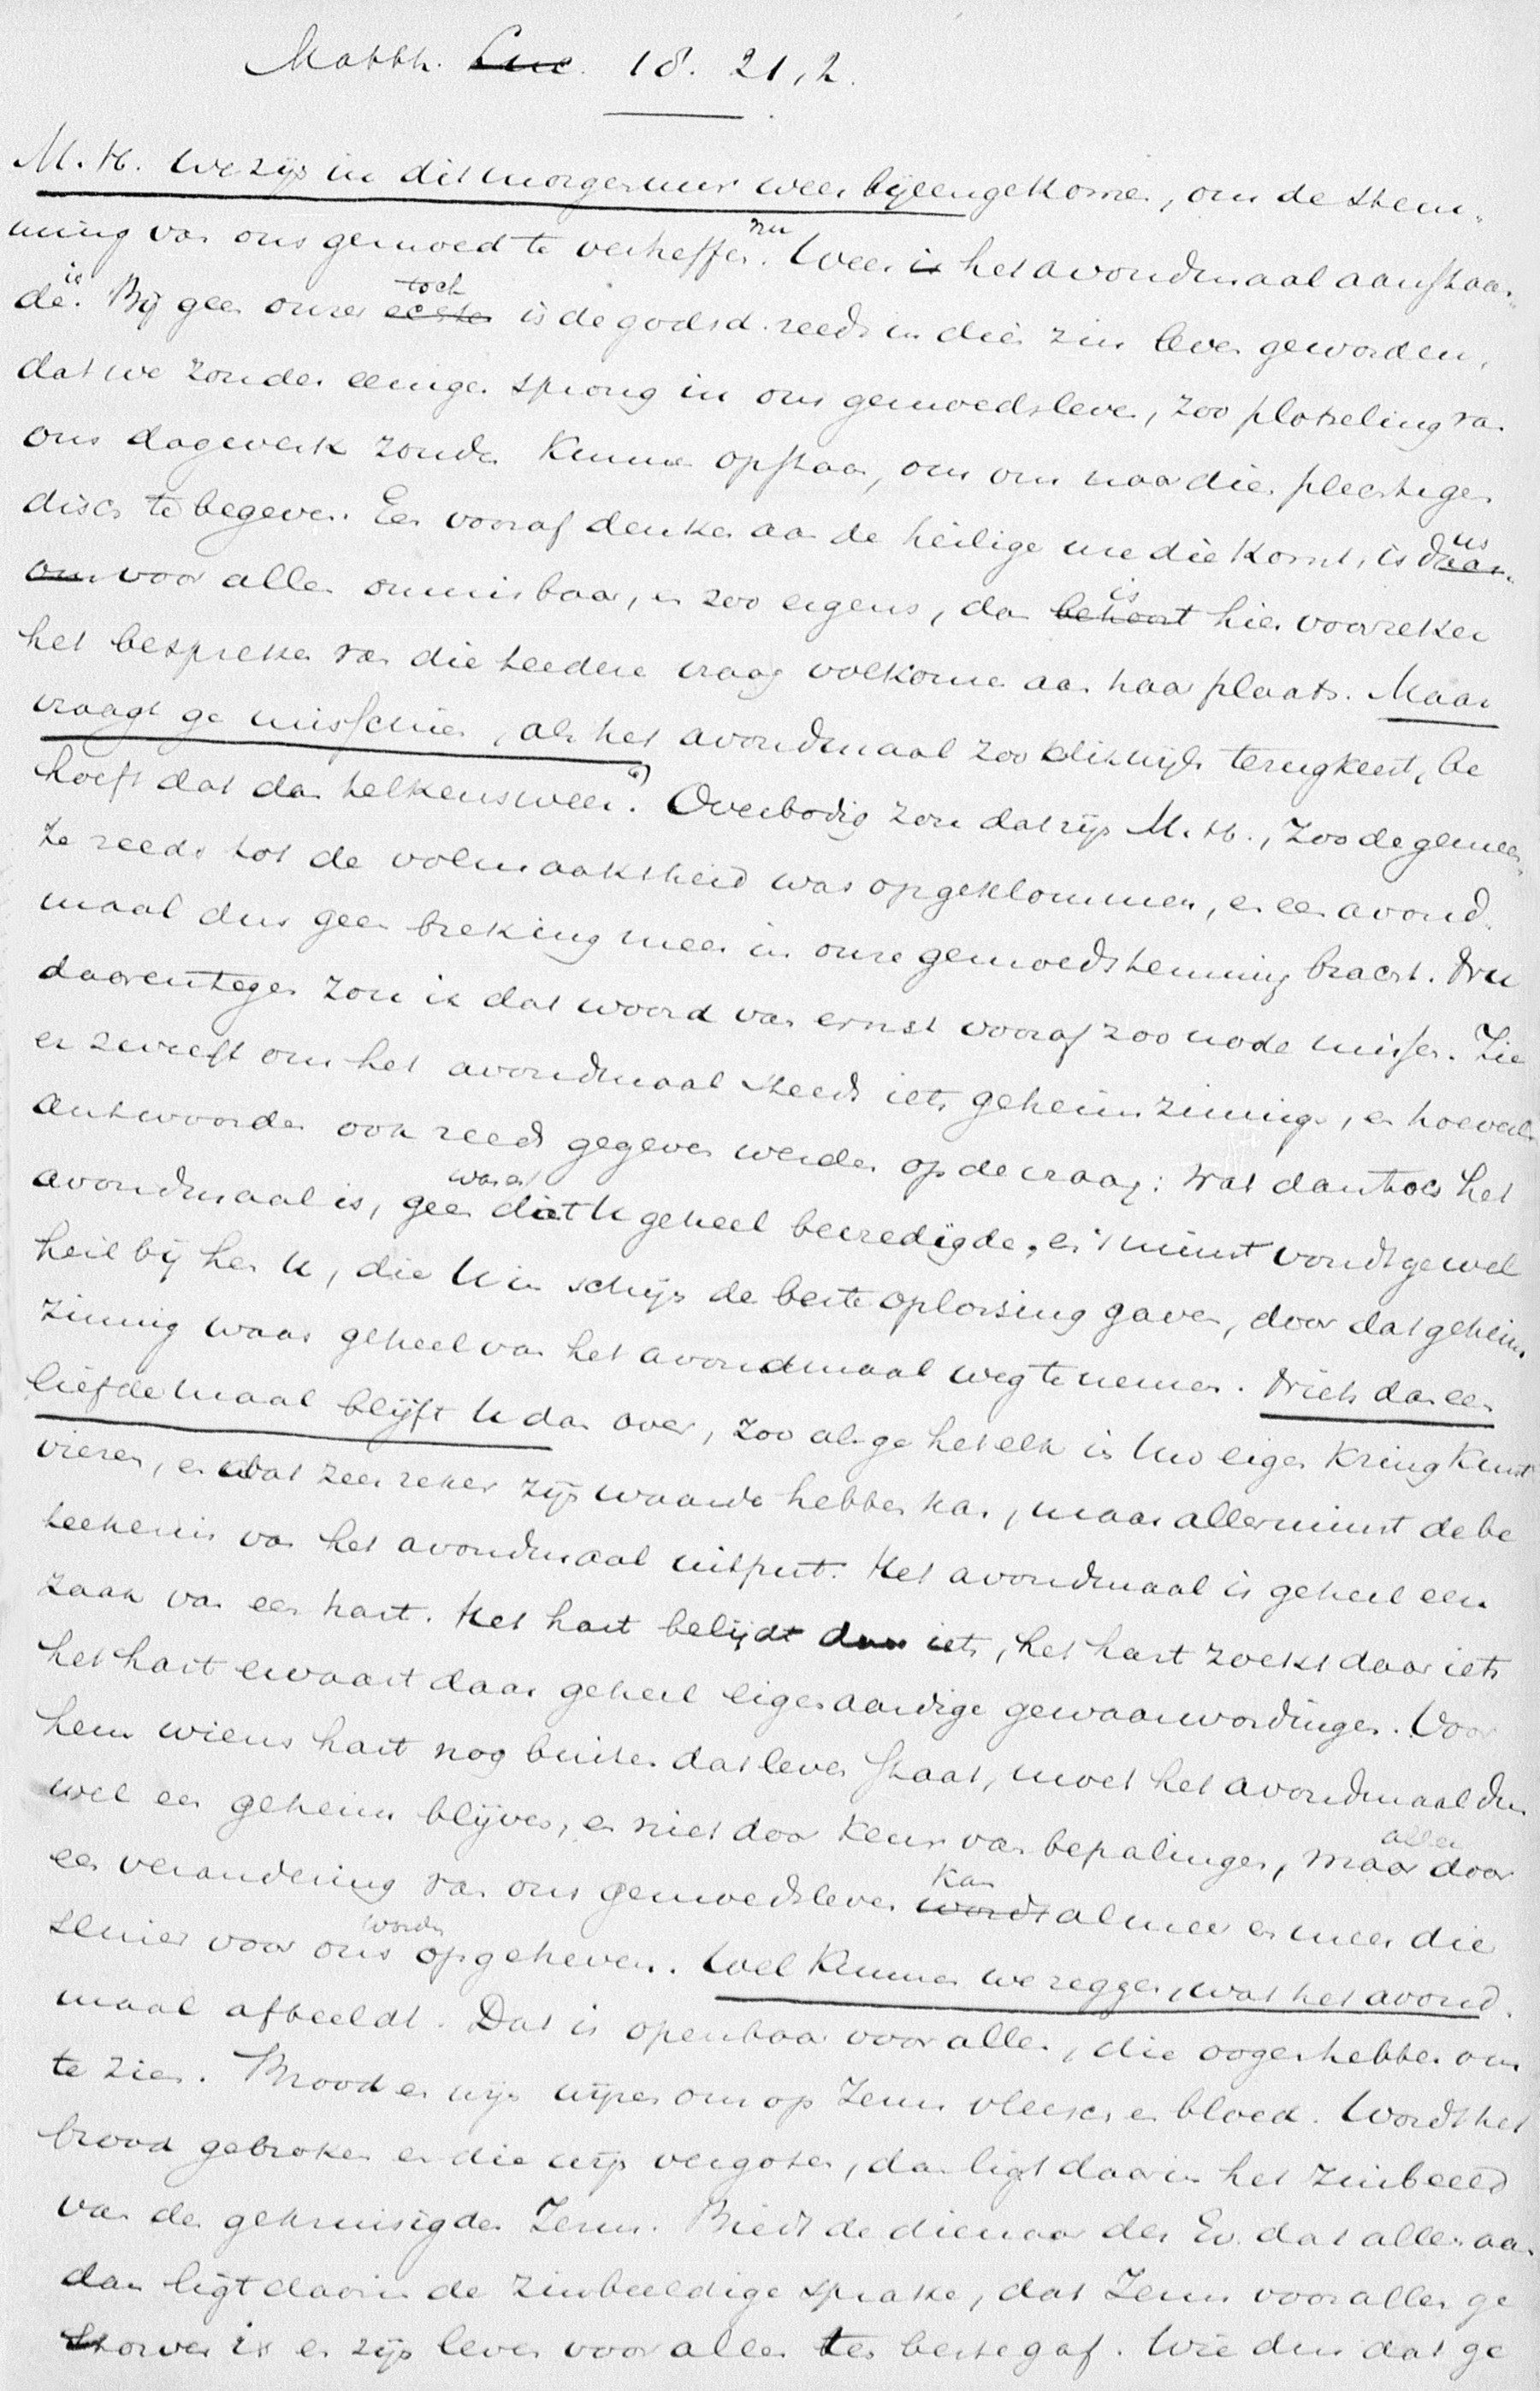 Matth. Luc. 18. 21, 2.
M. H. We zijn in dit morgenuur weer bijeengekomen, om de stem-
ming van ons gemoed te verheffen. Weer nu is het avondmaal aanstaan-
de is. Bij geen onzer echter toch is de godsd. reeds in dien zin leven geworden,
dat we zonder eenigen sprong in ons gemoedsleven, zoo plotseling van
ons dagewerk zouden kunnen opstaan, om ons naar dien plechtigen
disch te begeven. Een vooraf denken aan de heilige ure die komt, is daar- us
om voor allen onmisbaar, en zoo ergens, dan behoort is hier voorzeker
het bespreken van die teedere vraag volkomen aan haar plaats. Maar
vraagt ge misschien, als het avondmaal zoo dikwijls terugkeert, be
hoeft dat dan telkens weer? Overbodig zou dat zijn M. H., zoo de gemeen-
te reeds tot de volmaaktheid was opgeklommen, en een avond-
maal dus geen breking meer in onze gemoedstemming bracht. Nu
daarentegen zou ik dat woord van ernst vooraf zoo node missen. Zie
er zweeft om het avondmaal steeds iets geheimzinnigs, en hoeveel
antwoorden ook reeds gegeven werden op de vraag: wat dan toch het
avondmaal is, geen was er dat U geheel bevredigde, en 't minst vondt ge wel
heil bij hen U, die U in schijn de beste oplossing gaven, door dat geheim-
zinnig waas geheel van het avondmaal weg te nemen. Niets dan een
liefdemaal blijft U dan over, zoo als ge het elk in Uw eigen kring kunt
vieren, en wat zeer zeker zijn waarde hebben kan, maar allerminst de be
teekenis van het avondmaal uitput. Het avondmaal is geheel een
zaak van een hart. Het hart belijdt daar iets, het hart zoekt daar iets
het hart ervaart daar geheel eigenaardige gewaarwordingen. Voor
hem wiens hart nog buiten dat leven staat, moet het avondmaal dus
wel een geheim blijven, en niet door keur van bepalingen, maar alleen door
een verandering van ons gemoedsleven wordt kan al meer en meer die
sluier voor ons worden opgeheven. Wel kunnen we zeggen, wat het avond-
maal afbeeldt. Dat is openbaar voor allen, die oogen hebben om
te zien. Brood en wijn wijzen ons op Jezus vleesch en bloed. Wordt het
brood gebroken en die wijn vergoten, dan ligt daarin het zinbeeld
van den gekruisigden Jezus. Biedt de dienaar des Ev. dat allen aan
dan ligt daarin de zinbeeldige sprake, dat Jezus voor allen ge
storven is en zijn leven voor allen ten beste gaf. Wie dus dat ge